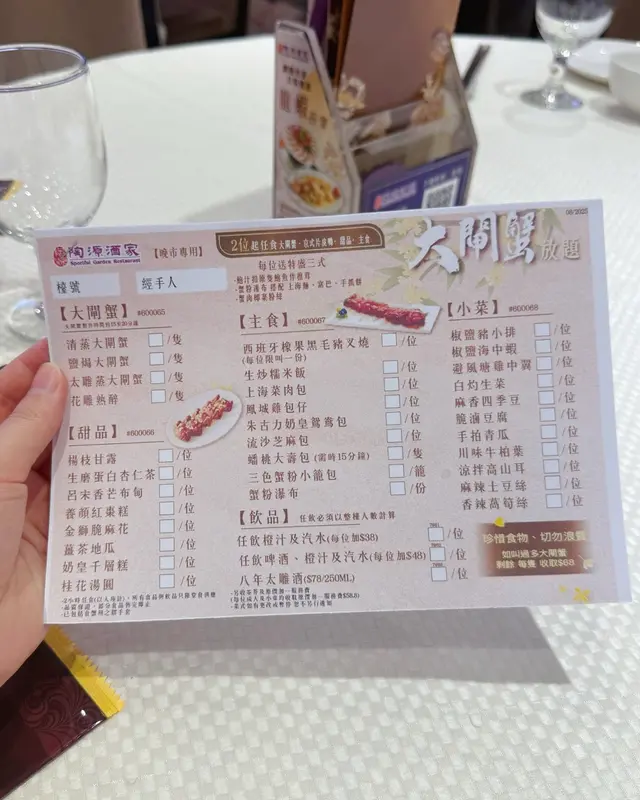 陶源酒家
Sportful Garden Restaurant
【晚市專用】
2位起任食大閘蟹、京式片皮鴨、甜品、主食
大閘蟹放題
08/2025
檯號
經手人
每位送特盛三式
【大閘蟹】#600065
清蒸大閘蟹 /隻
鹽焗大閘蟹 /隻
太雕蒸大閘蟹 /隻
花雕熟醉 /隻
【甜品】#600066
楊枝甘露 /位
生磨蛋白杏仁茶 /位
呂宋香芒布甸 /位
養顏紅棗糕 /位
金獅脆麻花 /位
薑茶地瓜 /位
奶皇千層糕 /位
桂花湯圓 /位
【主食】#600067
西班牙橡果黑毛豬叉燒 /位
(每位限叫一份)
生炒糯米飯 /位
上海菜肉包 /位
鳳城雞包仔 /位
朱古力奶皇鴛鴦包 /位
流沙芝麻包 /位
蟠桃大壽包(需時15分鐘) /隻
三色蟹粉小籠包 /籠
蟹粉瀑布 /份
【小菜】#600068
椒鹽豬小排 /位
椒鹽海中蝦 /位
避風塘雞中翼 /位
白灼生菜 /位
麻香四季豆 /位
脆滷豆腐 /位
手拍青瓜 /位
川味牛柏葉 /位
涼拌高山耳 /位
麻辣土豆絲 /位
香辣萵筍絲 /位
【飲品】任飲必須以整檯人數計算
任飲橙汁及汽水(每位加$38) /位
任飲啤酒、橙汁及汽水(每位加$48) /位
八年太雕酒($78/250ML) /位
珍惜食物、切勿浪費
如叫過多大閘蟹
剩餘 每隻 收取$68